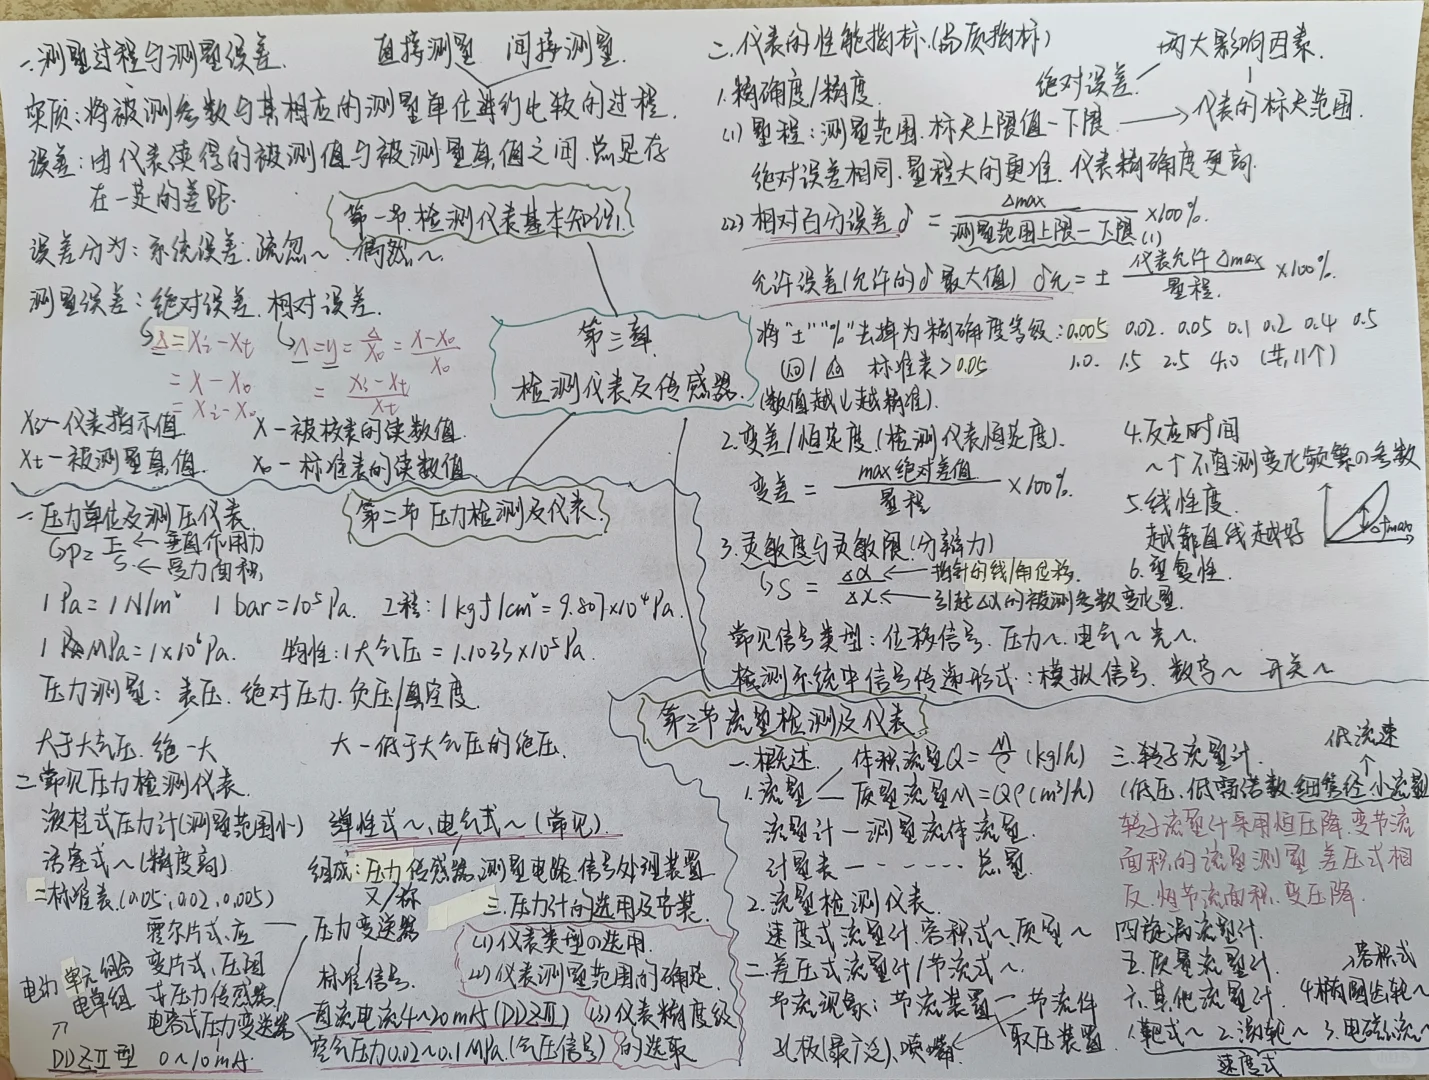 一.测量过程与测量误差. 直接测量 间接测量
实质:将被测参数与其相应的测量单位进行比较的过程.
误差:由仪表读得的被测值与被测量真值之间.总是存
在一定的差距.
第一节.检测仪表基本知识.
误差分为:系统误差.疏忽~.偶然~.
测量误差:绝对误差.相对误差.
Δ=Xi-Xt
=X-X0
=Xi-X0
Λ=y=Δ/X0=(X-X0)/X0
=(Xi-Xt)/Xt
Xi-仪表指示值. X-被校表的读数值.
Xt-被测量真值. X0-标准表的读数值
第三章.
检测仪表及传感器.
二.仪表的性能指标.(品质指标) 两大影响因素.
1.精确度/精度. 绝对误差. 仪表的标尺范围.
(1)量程:测量范围.标尺上限值-下限
绝对误差相同.量程大的更准.仪表精确度更高.
(2)相对百分误差δ=Δmax/测量范围上限-下限(1)×100%.
允许误差(允许的δ最大值) δ允=±仪表允许Δmax/量程.×100%.
将"±""%"去掉为精确度等级:0.005 0.02. 0.05 0.1 0.2 0.4 0.5
标准表>0.05 1.0. 1.5 2.5 4.0 (共11个)
(数值越小越精准).
2.变差/恒定度.(检测仪表恒定度).
变差=max绝对差值/量程×100%.
3.灵敏度与灵敏限(分辨力)
S=Δα/ΔX
Δα←指针的线/角位移.
ΔX←引起Δα的被测参数变化量.
4.反应时间
~↑不宜测变化频繁の参数
5.线性度.
越靠直线越好
Δfmax
6.重复性.
常见信号类型:位移信号.压力~.电气~光~.
检测系统中信号传递形式:模拟信号.数字~ 开关~
第二节 压力检测及仪表.
一.压力单位及测压仪表.
P=F/S
F←垂直作用力
S←受力面积
1Pa=1N/m² 1bar=10⁵Pa. 工程:1kgf/cm²=9.807×10⁴Pa.
1MPa=1×10⁶Pa. 物性:1大气压=1.1033×10⁵Pa.
压力测量:表压.绝对压力.负压/真空度.
大于大气压.绝-大 大-低于大气压的绝压.
二.常见压力检测仪表.
液柱式压力计(测量范围小) 弹性式~、电气式~(常见).
活塞式~(精度高)
=标准表.(0.05.0.02.0.005)
组成:压力传感器.测量电路.信号处理装置
又称
压力变送器
霍尔片式、应
变片式、压阻
式压力传感器
电容式压力变送器
标准信号.
直流电流4~20mA(DDZⅢ)
空气压力0.02~0.1MPa.(气压信号)
电动单元组合
电单组
DDZⅡ型 0~10mA.
三.压力计的选用及安装.
(1)仪表类型の选用.
(2)仪表测量范围的确定
(3)仪表精度级
的选取
第三节流量检测及仪表.
一.概述. 体积流量Q=M/ρ(kg/h)
1.流量 质量流量M=Qρ(m³/h)
流量计-测量流体流量.
计量表------总量.
2.流量检测仪表.
速度式流量计.容积式~.质量~
二.差压式流量计/节流式~.
节流现象:节流装置-节流件
取压装置
孔板(最广泛)、喷嘴
三.转子流量计. 低流速
(低压.低雷诺数.细管径.小流量
转子流量计采用恒压降.变节流
面积的流量测量.差压式相
反.恒节流面积.变压降.
四.旋涡流量计.
五.质量流量计. 容积式
六.其他流量计 4.椭圆齿轮~
1.靶式~ 2.涡轮~ 3.电磁流~
速度式